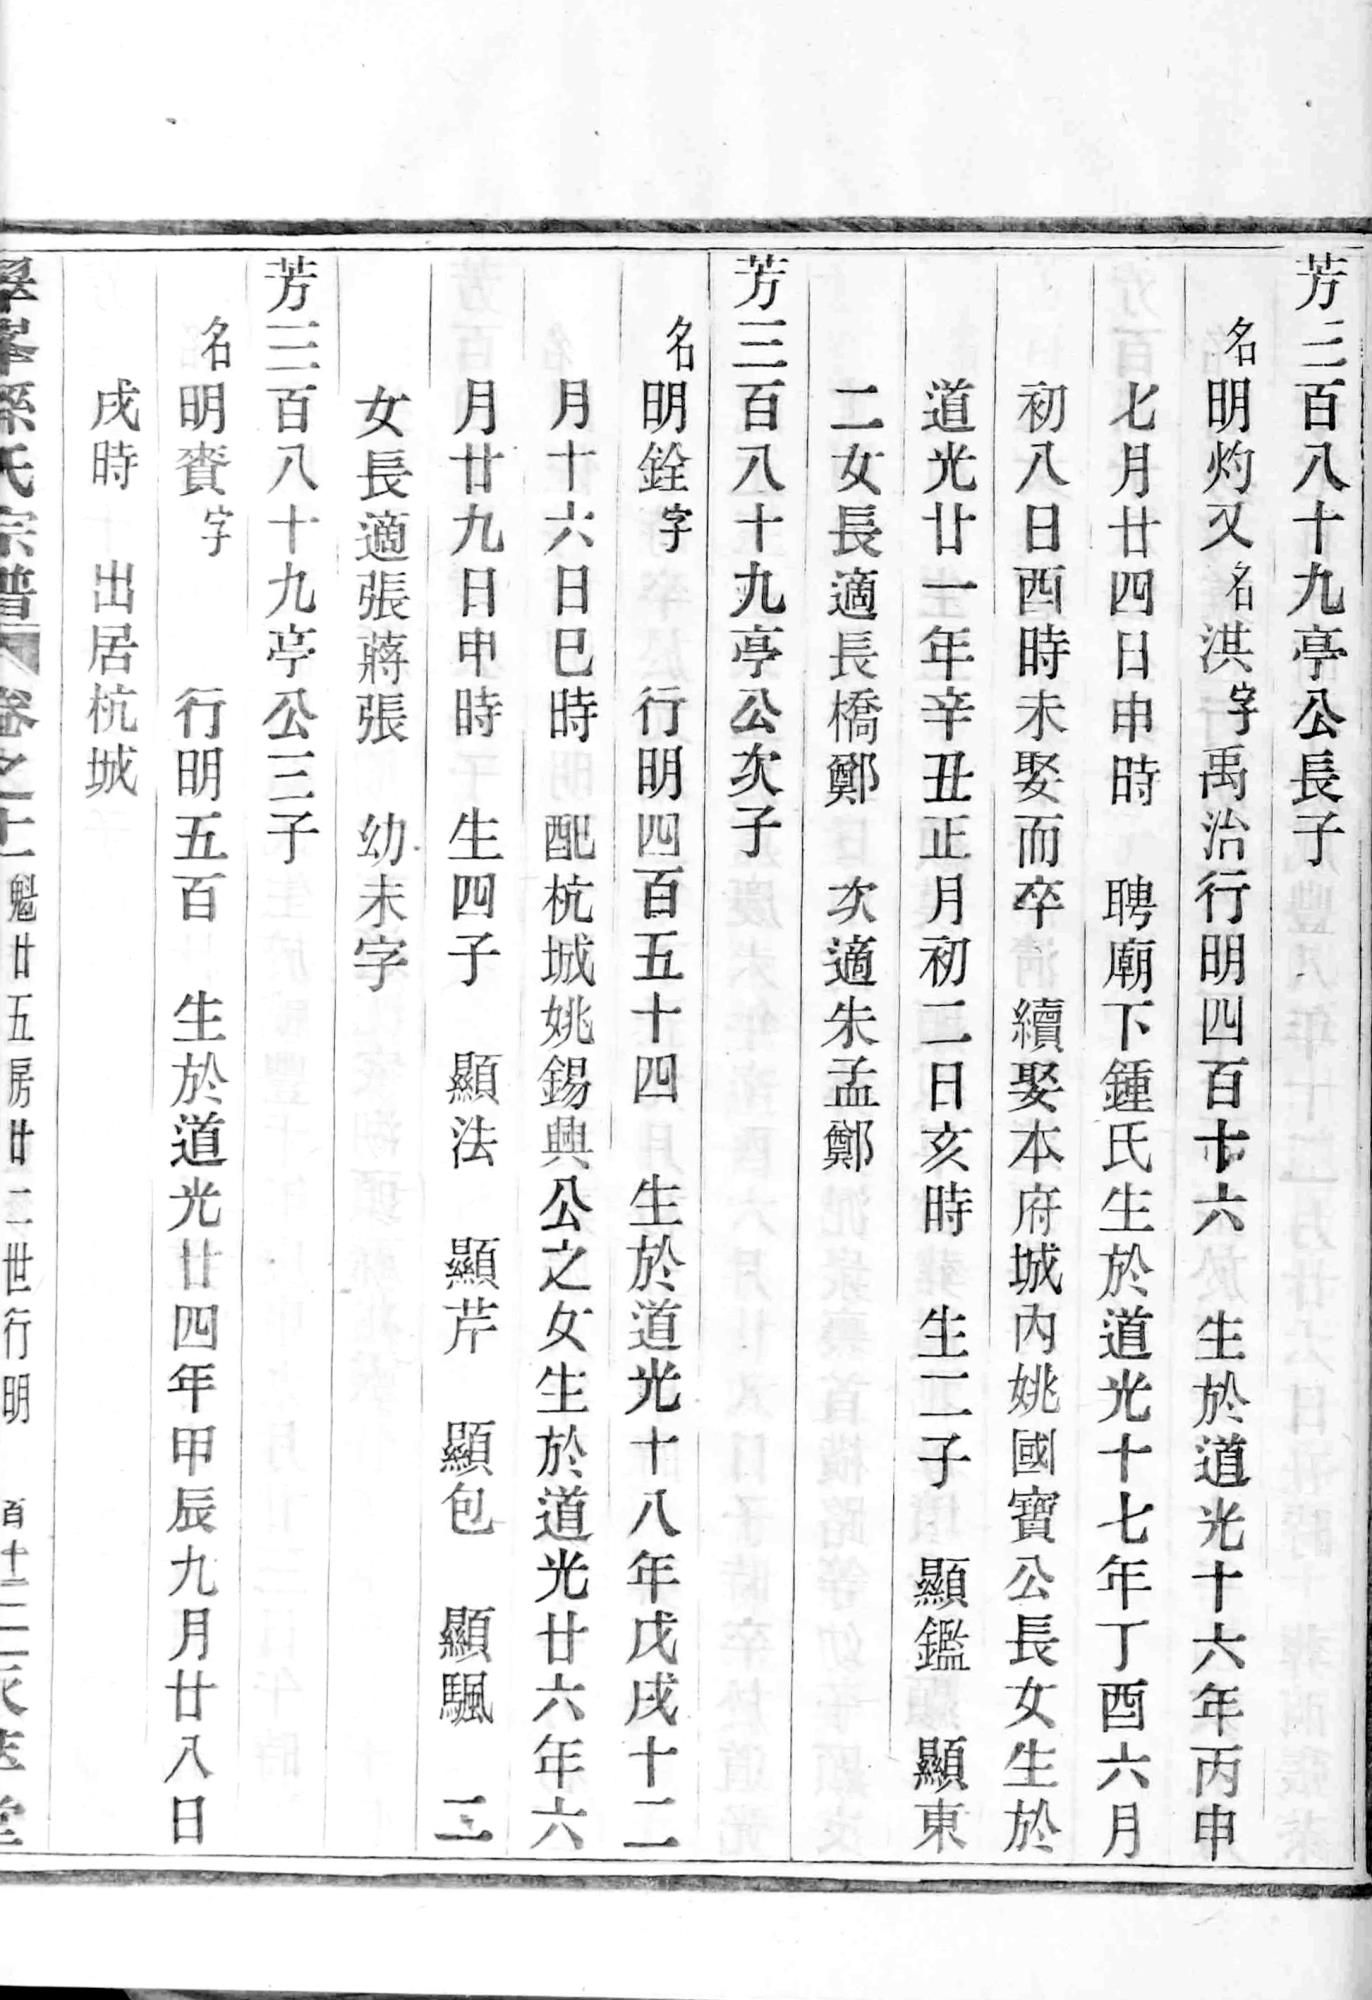 芳三百八十九亭公長子
名明灼又名洪字禹治行明四百十六　生於道光十六年丙申
七月廿四日申時　聘廟下鍾氏生於道光十七年丁酉六月
初八日酉時未娶而卒　續娶本府城內姚國寶公長女生於
道光廿一年辛丑正月初二日亥時　生二子　顯鑑　顯東
二女長適長橋鄭　次適朱孟鄭
芳三百八十九亭公次子
名明銓字　行明四百五十四　生於道光十八年戊戌十二
月十六日巳時　配杭城姚錫興公之女生於道光廿六年六
月廿九日申時　生四子　顯法　顯芹　顯包　顯颿　二
女長適張蔣張　幼未字
芳三百八十九亭公三子
名明賚字　行明五百　生於道光廿四年甲辰九月廿八日
戌時　出居杭城
孫氏宗譜　卷之十　魁廿五房廿二世行明